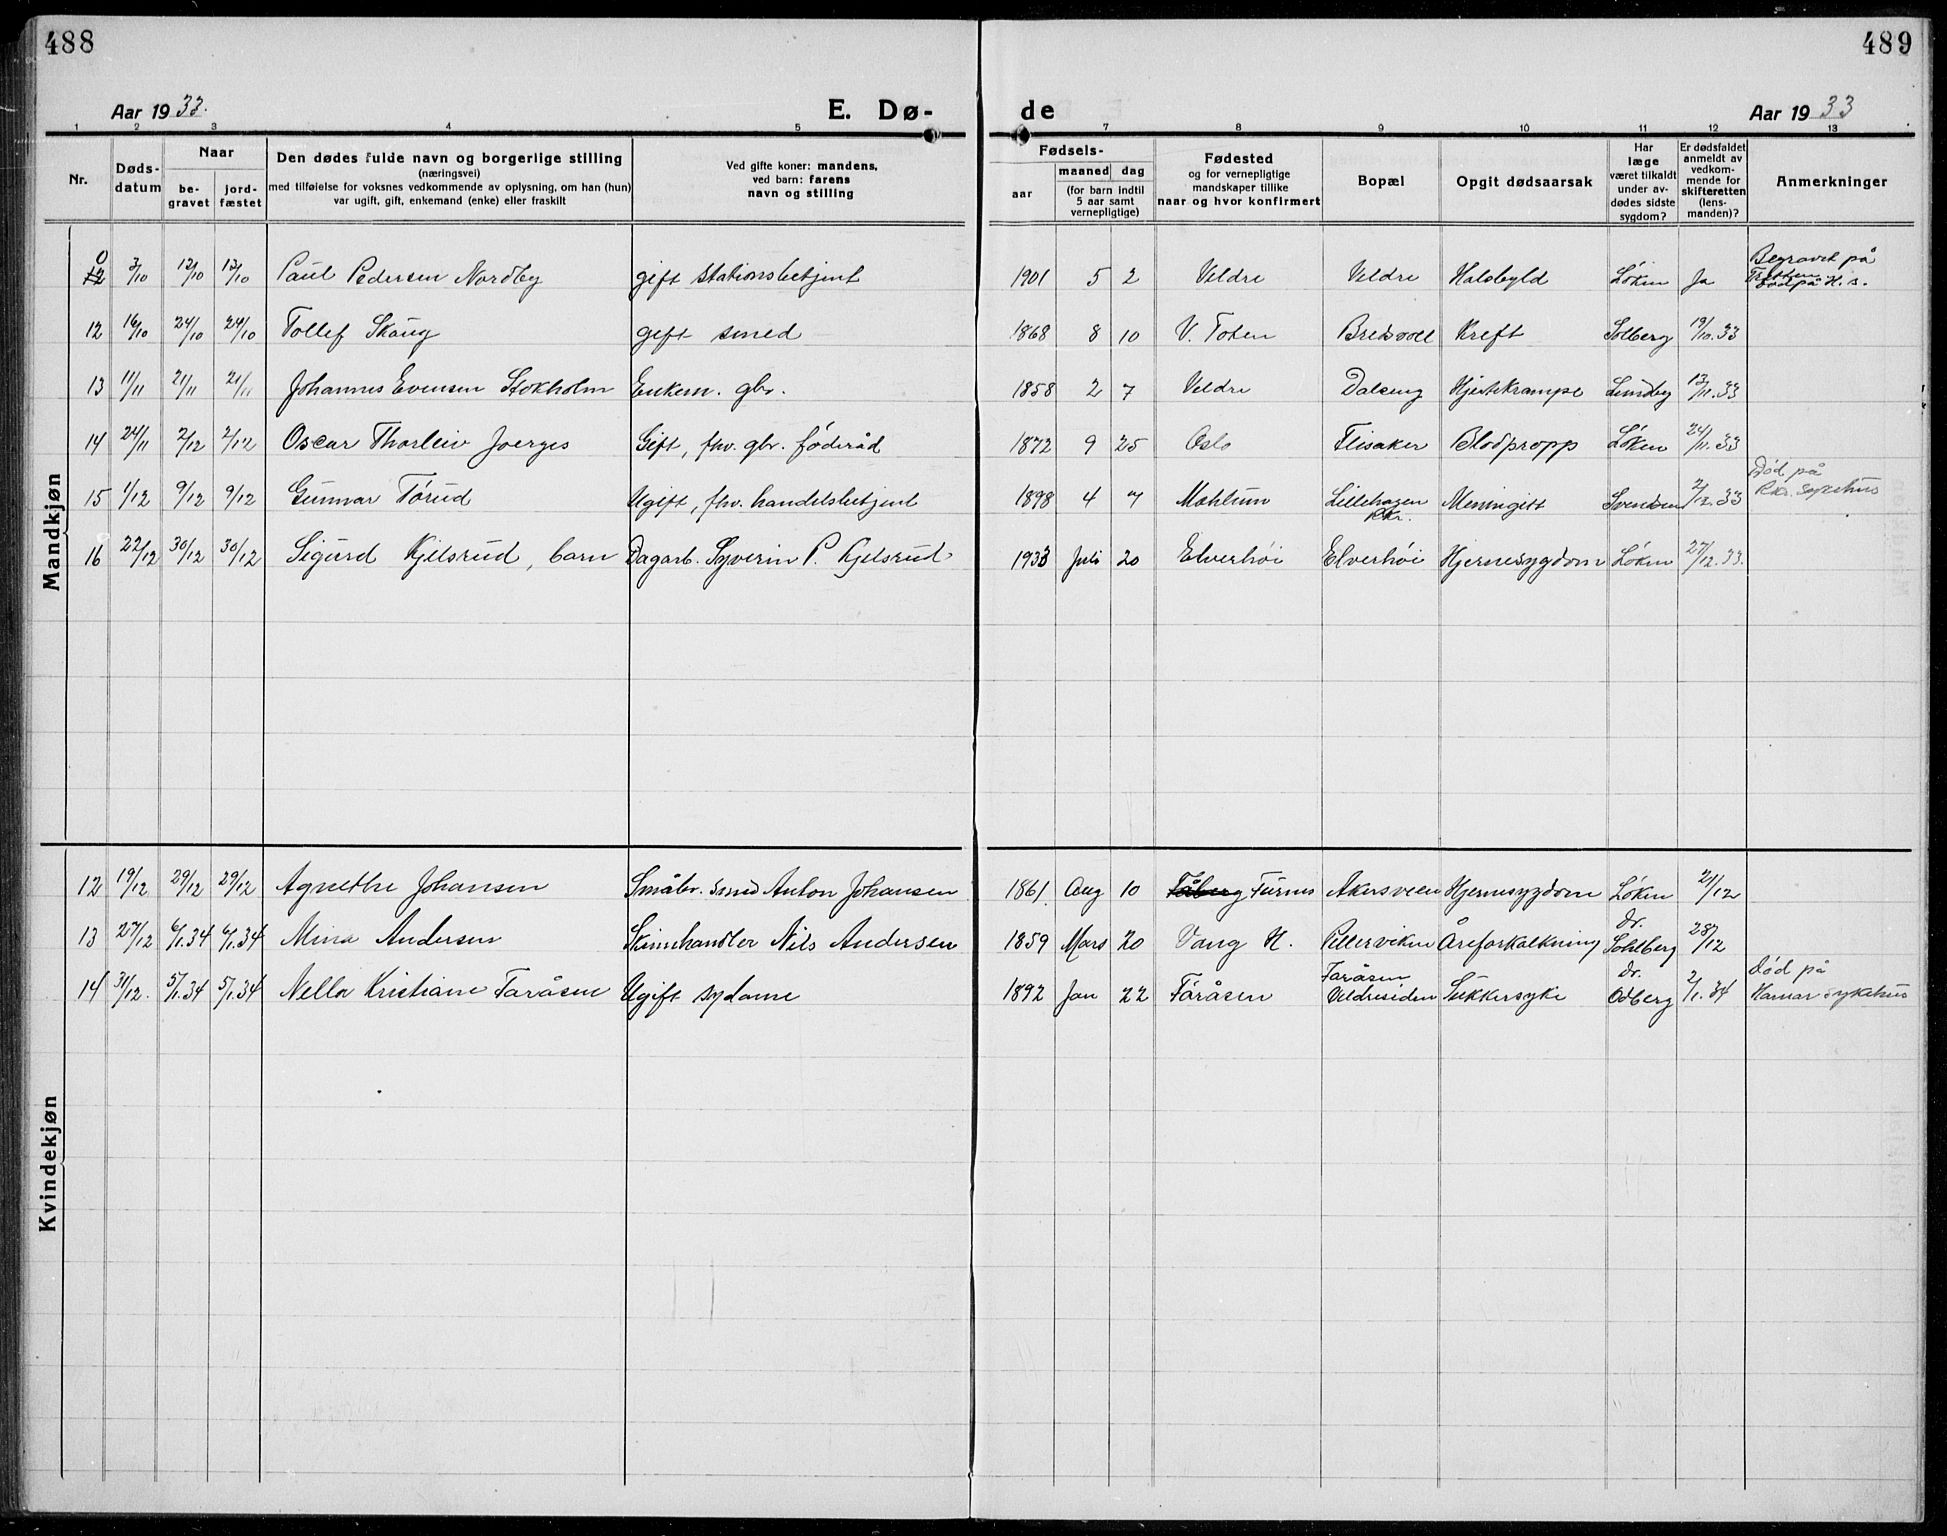 488
489
Aar 1933.
E. Dø-
de
Aar 1933
1 2 3 4 5 7 8 9 10 11 12 13
Nr.
Døds-
datum
Naar
be-
gravet
jord-
fæstet
Den dødes fulde navn og borgerlige stilling
(næringsvei)
med tilføielse for voksnes vedkommende av oplysning, om han (hun)
var ugift, gift, enkemand (enke) eller fraskilt
Ved gifte koner: mandens,
ved barn: farens
navn og stilling
Fødsels-
aar
maaned dag
(for barn indtil
5 aar samt
vernepligtige)
Fødested
og for vernepligtige
mandskaper tillike
naar og hvor konfirmert
Bopæl
Opgit dødsaarsak
Har
læge
været tilkaldt
under av-
dødes sidste
sygdom?
Er dødsfaldet
anmeldt av
vedkom-
mende for
skifteretten
(lens-
manden)?
Anmerkninger
Mandkjøn
0
12 3/10 13/10 13/10 Paul Pedersen Nordby gift stationsbetjent 1901 5 2 Veldre Veldre Halsbyld Løken Ja Begravet på
Tretten
død på H. s.
12 16/10 24/10 24/10 Tollef Skaug gift smed 1868 8 10 V. Toten Bredvoll Kreft Solberg 19/10.33
13 11/11 21/11 21/11 Johannes Evensen Stokholm Enkem. gbr. 1858 2 7 Veldre Dalseng Hjertekrampe Lundby 13/11.33
14 24/11 2/12 2/12 Oscar Thorleiv Joerges Gift, fhv. gbr. føderåd 1872 9 25 Oslo Flisaker Blodpropp Løken 24/11.33
15 1/12 9/12 9/12 Gunnar Törud Ugift, fhv. handelsbetjent 1898 4 7 Mohlum Lillehagen
Rkr. Meningitt Svendsen 2/12.33 Død på
Rkr. sykehus
16 22/12 30/12 30/12 Sigurd Kjelsrud, barn Dagarb. Syverin P. Kjelsrud 1933 Juli 20 Elverhöi Elverhöi Hjernesygdom Løken 27/12.33.
Kvindekjøn
12 19/12 29/12 29/12 Agnethe Johansen Småbr. smed Anton Johansen 1861. Aug 10 Fåberg Furnes Akersveen Hjernesygdom Løken 21/12
13 27/12 6/1.34 6/1.34 Mina Andersen Skinnhandler Nils Andersen 1859 Mars 20 Vang H. Pellerviken Åreforkalkning dr.
Sohlberg 28/12
14 31/12. 5/1.34 5/1.34 Nella Kristiane Faråsen Ugift sydame 1892 Jan 22 Faråsen Faråsen
Veldresiden Sukkersyke dr.
Odberg 2/1.34 død på
Hamar sykehus